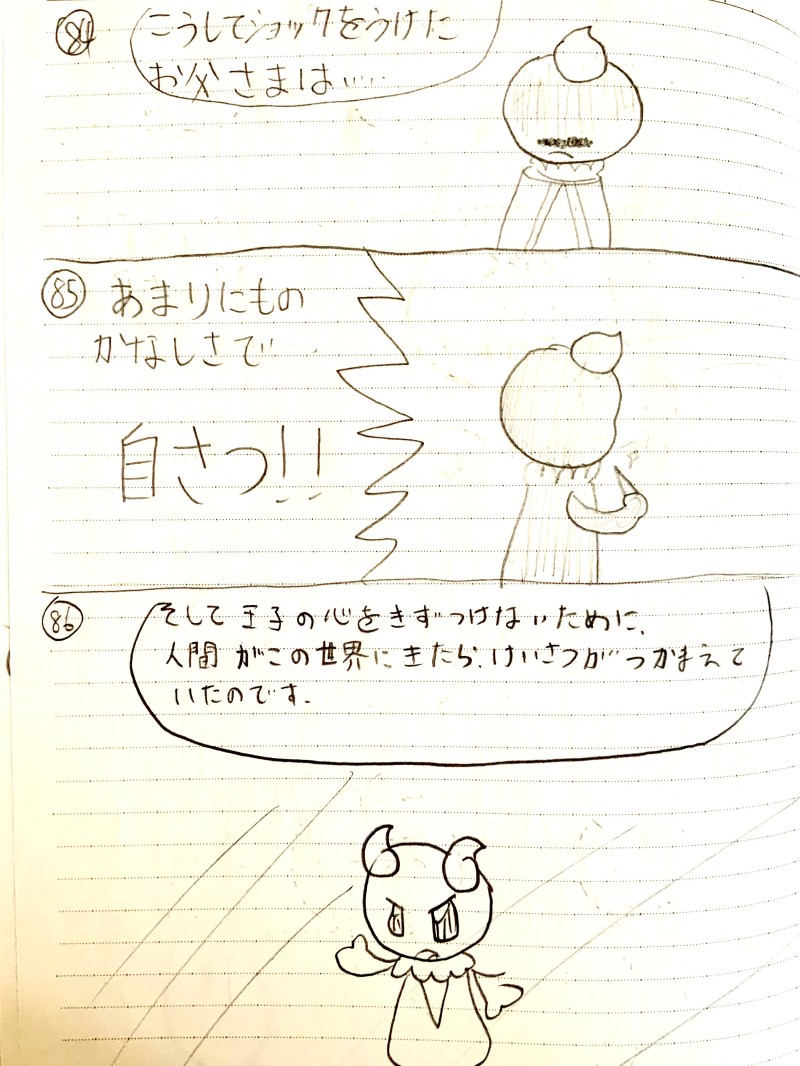 84
こうしてショックをうけた
お父さまは……
85
あまりにもの
かなしさで
自さつ!!
86
そして王子の心をきずつけないために、
人間がこの世界にきたら、けいさつがつかまえて
いたのです.